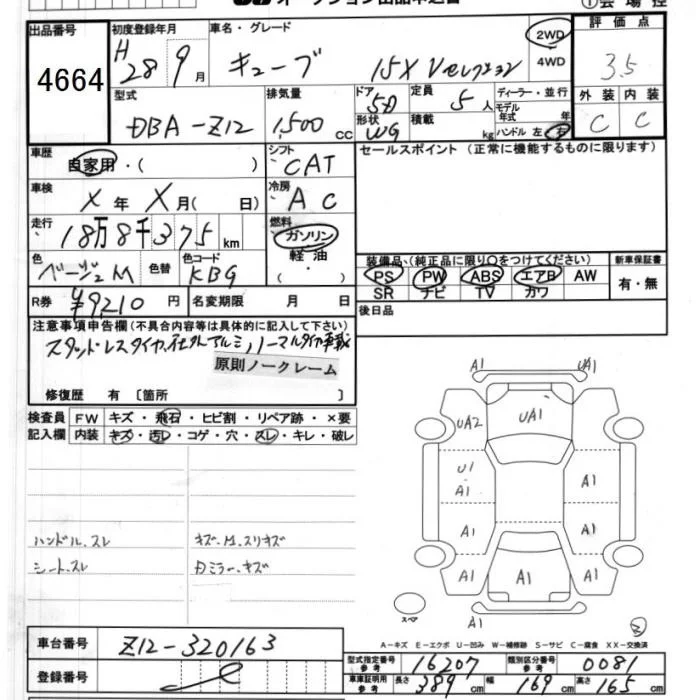 オークション出品申込書
①会場控
出品番号
4664
初度登録年月
H 28 9月
車名・グレード
キューブ 15X Vセレクション
2WD
4WD
評価点
3.5
外装 内装
C C
型式
DBA-Z12
排気量
1,500 cc
ドア 5D
形状 WG
定員 5人
積載 kg
ディーラー・並行
モデル年式 年
ハンドル 左・右
車歴
自家用・( )
シフト
CAT
車検
X年 X月( 日)
冷房
AC
走行
18万8千375km
燃料
ガソリン
軽油
( ・ )
色
ベージュM
色替
色コード
KBG
R券
¥9,210円
名変期限 月 日
セールスポイント (正常に機能するものに限ります)
装備品 (純正品に限り○をつけてください)
PS PW ABS エアB AW
SR ナビ TV カワ
新車保証書
有・無
後日品
注意事項申告欄(不具合内容等は具体的に記入して下さい)
スタッドレスタイヤ、社外アルミ、ノーマルタイヤ車載
原則ノークレーム
修復歴 有 〔箇所 〕
検査員記入欄
FW キズ・飛石・ヒビ割・リペア跡・×要
内装 キズ・汚レ・コゲ・穴・スレ・キレ・破レ
ハンドル、スレ
キズ、M、スリキズ
シート、スレ
Dミラー、キズ
A1 UA1
UA2 UA1 A1
U1 A1
A1
A1 A1
A1 A1 A1
A1
スペア
A-キズ E-エクボ U-凹み W-補修跡 S-サビ C-腐食 XX-交換済
車台番号
Z12-320163
登録番号
型式指定番号 参考 16207
類別区分番号 参考 0081
車庫証明用 参考 長さ 389cm 幅 169cm 高さ 165cm